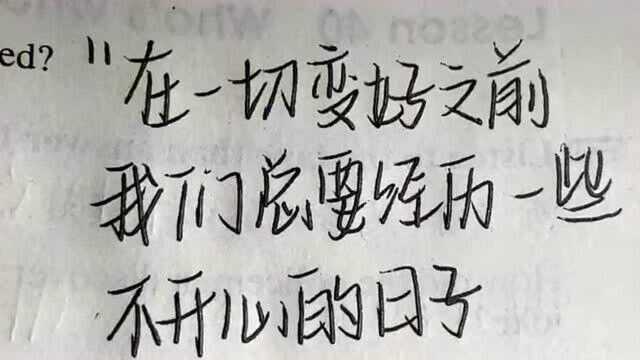 Lesson 40 Who's who
ed? "在一切变好之前
我们总要经历一些
不开心的日子